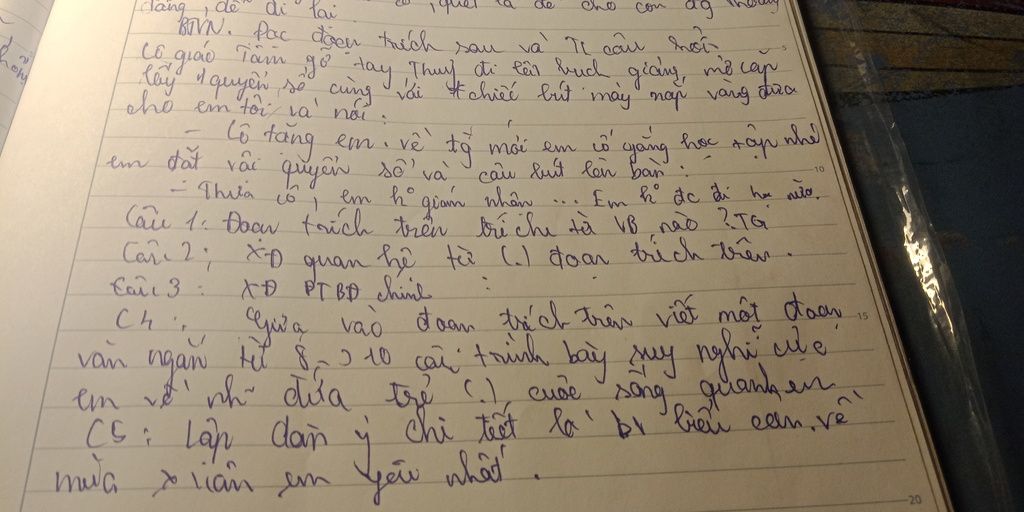 dằng, dễ đi lại
BTVN. Đọc đoạn trích sau và TL câu hỏi
Cô giáo Tâm gỡ tay Thuỷ, đi lên bục giảng, mở cặp
lấy 1 quyển sổ cùng với 1 chiếc bút máy nắp vàng đưa
cho em tôi và nói:
- Cô tặng em. về tg mới em cố gắng học tập nhé
em đặt vội quyển sổ và cây bút lên bàn:
- Thưa cô, em k° giám nhận ... Em k° đc đi học nữa.
Câu 1: Đoạn trích trên trích từ VB nào? TG
Câu 2: XĐ quan hệ từ (.) đoạn trích trên.
Câu 3: XĐ PTBĐ chính
C4: Dựa vào đoạn trích trên viết một đoạn
văn ngắn từ 8 -> 10 câu trình bày suy nghĩ của
em về nh~ đứa trẻ (.) cuộc sống quanh em
C5: Lập dàn ý chi tiết là bv biểu cảm về
mùa xuân em yêu nhất.